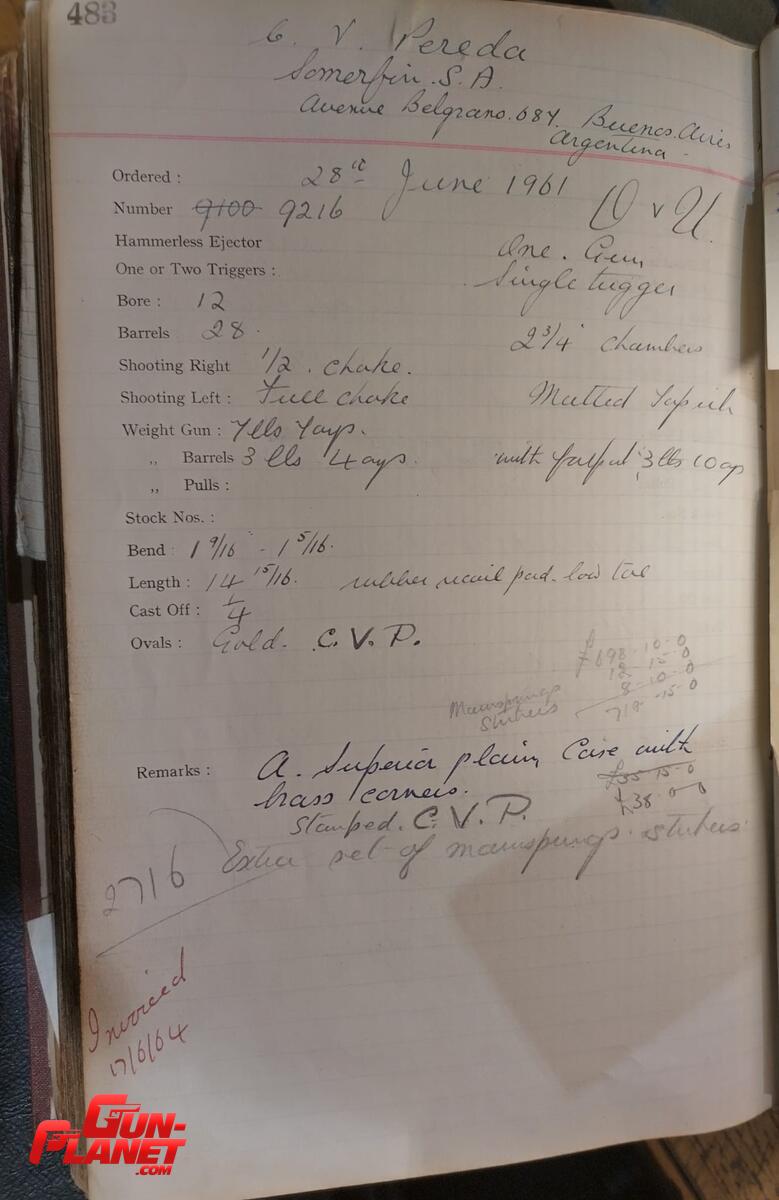 483
C. V. Pereda
Somerfin. S. A.
Avenue Belgrano. 687. Buenos Aires
Argentina -
Ordered : 28th June 1961
Number 9100 9216 O v U.
Hammerless Ejector One. Gun
One or Two Triggers : Single trigger
Bore : 12
Barrels 28. 2 3/4" chambers
Shooting Right 1/2. choke.
Shooting Left : Full choke Matted Top rib
Weight Gun : 7lbs 7ozs.
,, Barrels 3 lbs 4 ozs. with 3 lbs 10 ozs
,, Pulls :
Stock Nos. :
Bend : 1 9/16 - 1 5/16.
Length : 14 15/16. rubber recoil pad. low toe
Cast Off : 1/4
Ovals : Gold. C. V. P.
£698-10-0
12-15-0
Mainsprings 8-10-0
Strikers 719-15-0
Remarks : A. Superior plain Case with
brass corners. £35-15-0
Stamped. C. V. P. £38-0-0
Extra set of mainsprings. strikers.
2716
Invoiced
17/6/64
GUN-
PLANET
.COM